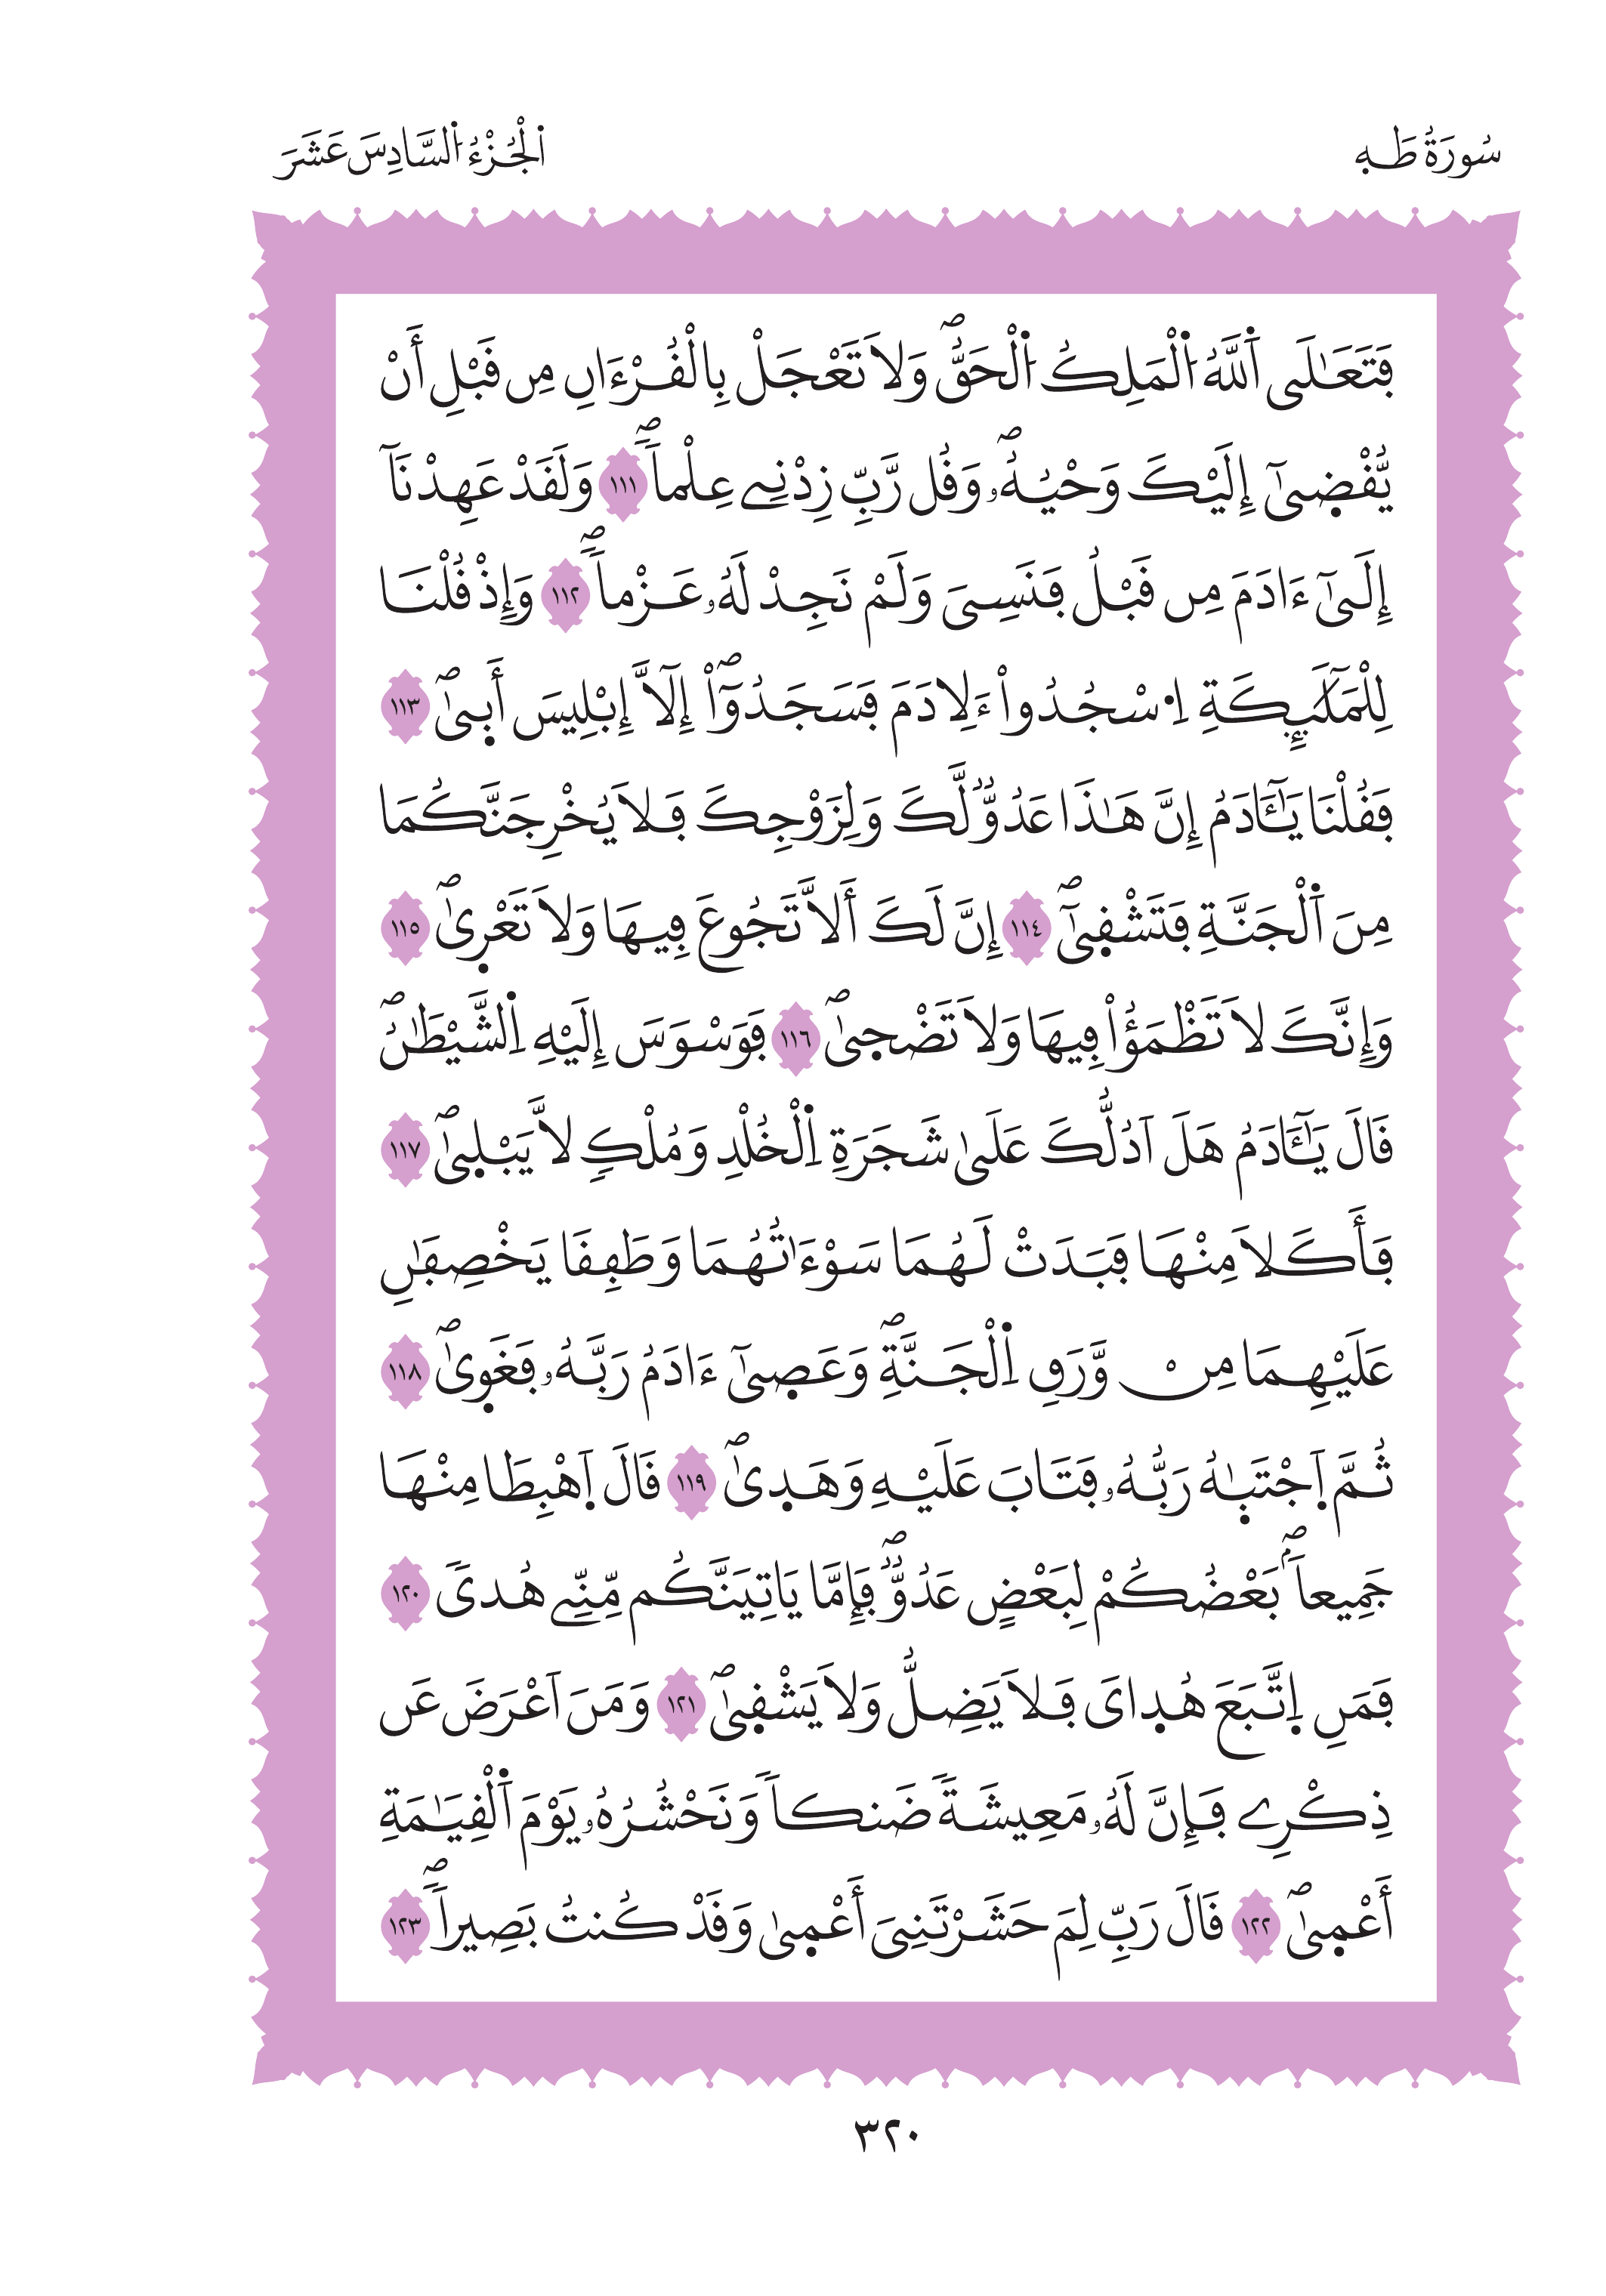 سُورَةُ طَهِ
اَ۬لْجُزْءُ اُ۬لسَّادِسَ عَشَرَ
فَتَعَٰلَى اَ۬للَّهُ اُ۬لْمَلِكُ اُ۬لْحَقُّۖ وَلَا تَعْجَلْ بِالْقُرْءَانِ مِن قَبْلِ أَنْ
يُّقْض۪ىٰٓ إِلَيْكَ وَحْيُهُۥۖ وَقُل رَّبِّ زِدْنِے عِلْماٗۖ ١١١ وَلَقَدْ عَهِدْنَآ
إِلَىٰٓ ءَادَمَ مِن قَبْلُ فَنَسِىَ وَلَمْ نَجِدْ لَهُۥ عَزْماٗۖ ١١٢ وَإِذْ قُلْنَا
لِلْمَلَٰٓئِكَةِ اِ۟سْجُدُواْ ءَلِادَمَ فَسَجَدُوٓاْۖ إِلَّآ إِبْلِيسَ أَب۪ىٰۖ ١١٣
فَقُلْنَا يَٰٓـَٔادَمُ إِنَّ هَٰذَا عَدُوّٞ لَّكَ وَلِزَوْجِكَ فَلَا يُخْرِجَنَّكُمَا
مِنَ اَ۬لْجَنَّةِ فَتَشْق۪ىٰٓۖ ١١٤ إِنَّ لَكَ أَلَّا تَجُوعَ فِيهَا وَلَا تَعْر۪ىٰۖ ١١٥
وَإِنَّكَ لَا تَظْمَؤُاْ فِيهَا وَلَا تَضْح۪ىٰۖ ١١٦ فَوَسْوَسَ إِلَيْهِ اِ۬لشَّيْطَٰنُۖ
قَالَ يَٰٓـَٔادَمُ هَلَ اَدُلُّكَ عَلَىٰ شَجَرَةِ اِ۬لْخُلْدِ وَمُلْكٖ لَّا يَبْل۪ىٰۖ ١١٧
فَأَكَلَا مِنْهَا فَبَدَتْ لَهُمَا سَوْءَٰتُهُمَا وَطَفِقَا يَخْصِفَٰنِ
عَلَيْهِمَا مِنْ وَّرَقِ اِ۬لْجَنَّةِۖ وَعَص۪ىٰٓ ءَادَمُ رَبَّهُۥ فَغَو۪ىٰۖ ١١٨
ثُمَّ اَ۪جْتَبٰ۪هُ رَبُّهُۥ فَتَابَ عَلَيْهِ وَهَد۪ىٰۖ ١١٩ قَالَ اَ۪هْبِطَا مِنْهَا
جَمِيعاَۢۖ بَعْضُكُمْ لِبَعْضٍ عَدُوّٞۖ فَإِمَّا يَاتِيَنَّكُم مِّنِّے هُدىٗ ١٢٠
فَمَنِ اِ۪تَّبَعَ هُد۪اىَ فَلَا يَضِلُّ وَلَا يَشْق۪ىٰۖ ١٢١ وَمَنَ اَعْرَضَ عَن
ذِكْرِے فَإِنَّ لَهُۥ مَعِيشَةٗ ضَنكاٗ وَنَحْشُرُهُۥ يَوْمَ اَ۬لْقِيَٰمَةِ
أَعْم۪ىٰۖ ١٢٢ قَالَ رَبِّ لِمَ حَشَرْتَنِىَ أَعْم۪ىٰ وَقَدْ كُنتُ بَصِيراٗۖ ١٢٣
٣٢٠